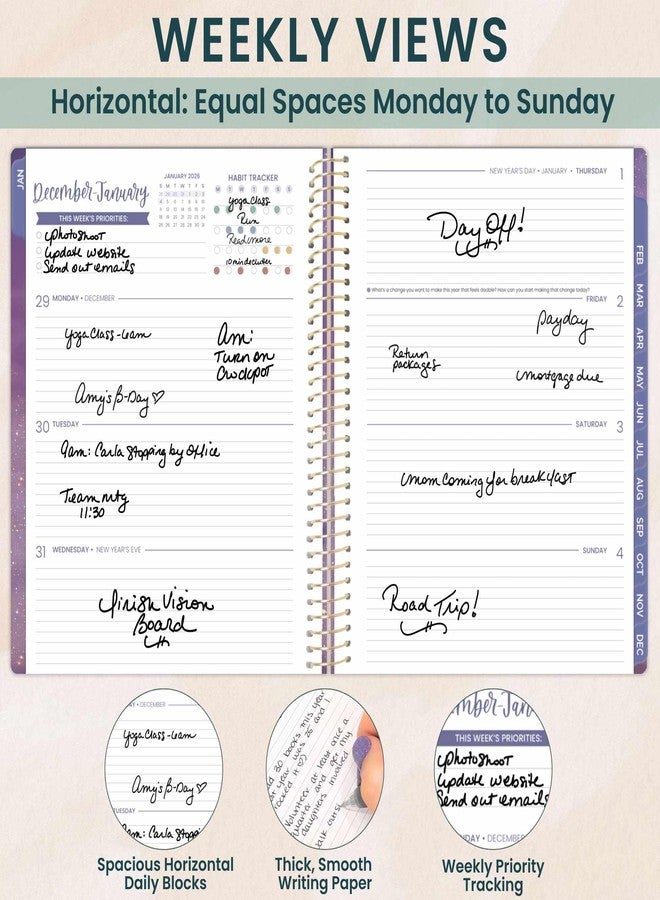 WEEKLY VIEWS
Horizontal: Equal Spaces Monday to Sunday
JAN
December-January
THIS WEEK'S PRIORITIES:
Photoshoot
Update website
Send out emails
JANUARY 2026
S M T W T F S
HABIT TRACKER
M T W T F S S
Yoga Class
Run
Read more
10 min declutter
29 MONDAY • DECEMBER
Yoga Class - 6am
Amy's B-Day ♡
Am:
Turn on
Crockpot
30 TUESDAY
9am: Carla Stopping by Office
Team mtg
11:30
31 WEDNESDAY • NEW YEAR'S EVE
Finish Vision
Board
NEW YEAR'S DAY • JANUARY • THURSDAY 1
Day Off!
What's a change you want to make this year that feels doable? How can you start making that change today?
FRIDAY 2
Payday
Return
packages
Mortgage due
SATURDAY 3
Mom Coming for breakfast
SUNDAY 4
Road Trip!
FEB
MAR
APR
MAY
JUN
JUL
AUG
SEP
OCT
NOV
DEC
AY • DECEMBER
Yoga Class - 6am
Amy's B-Day ♡
TUESDAY
9am: Carla Stopp
30 books this year
year was 25 and I
rocked it
Volunteer at least once a
quarter and get my
daughters involved
mber-Jan
THIS WEEK'S PRIORITIES:
Photoshoot
Update website
Send out emails
DAY • DECEMBER
Spacious Horizontal
Daily Blocks
Thick, Smooth
Writing Paper
Weekly Priority
Tracking